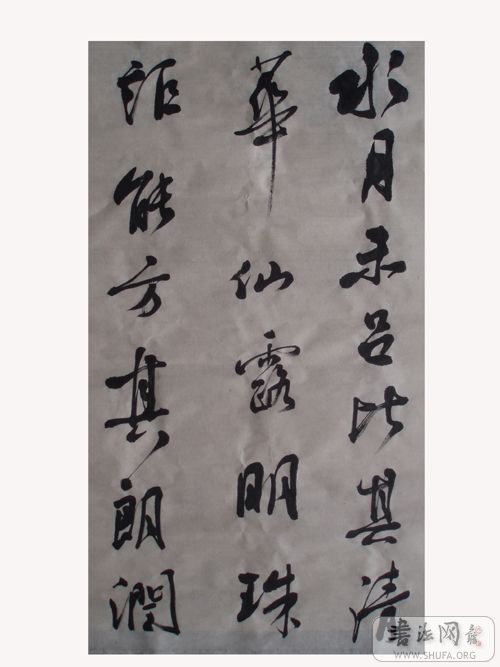 水月未足比其清
華仙露明珠
詎能方其朗潤
書法网
WWW.SHUFA.ORG